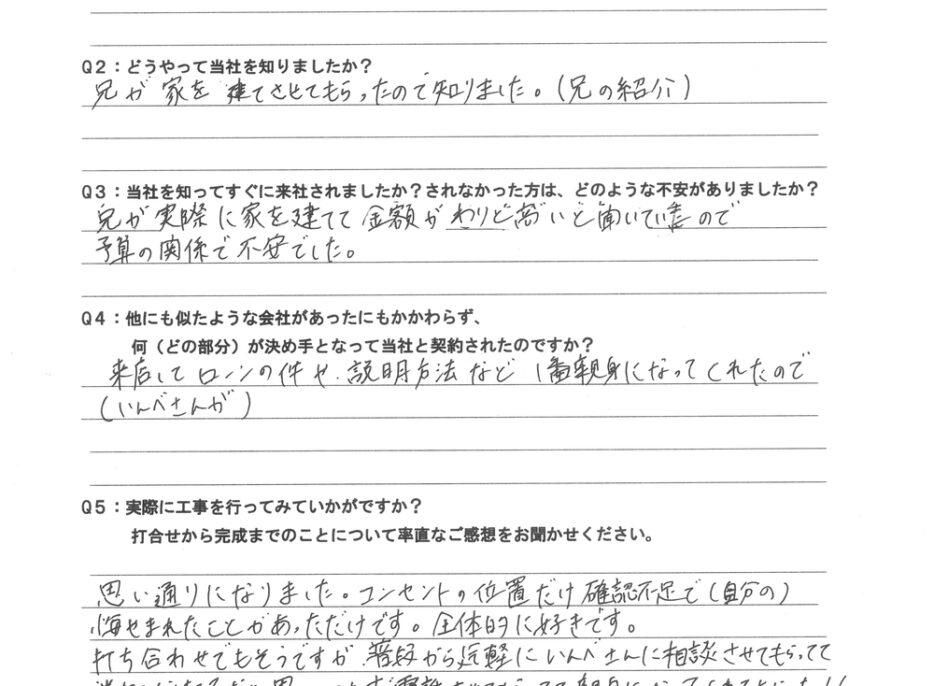 Q2：どうやって当社を知りましたか？
兄が家を建てさせてもらったので知りました。(兄の紹介)
Q3：当社を知ってすぐに来社されましたか？されなかった方は、どのような不安がありましたか？
兄が実際に家を建てて金額がわりと高いと聞いていたので
予算の関係で不安でした。
Q4：他にも似たような会社があったにもかかわらず、
何（どの部分）が決め手となって当社と契約されたのですか？
来店してローンの件や、説明方法など1番親身になってくれたので
(いんべさんが)
Q5：実際に工事を行ってみていかがですか？
打合せから完成までのことについて率直なご感想をお聞かせください。
思い通りになりました。コンセントの位置だけ確認不足で(自分の)
悔やまれたことがあっただけです。全体的に好きです。
打ち合わせでもそうですが普段から気軽にいんべさんに相談させてもらってて